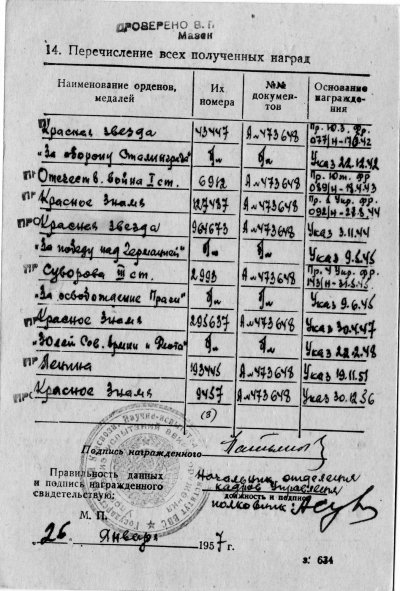 ПРОВЕРЕНО В. Г.
Мазен
14. Перечисление всех полученных наград
Наименование орденов, медалей | Их номера | №№ документов | Основание награждения
Красная звезда | 43447 | А №473648
"За оборону Сталинграда" | б/н | б/н | Указ 22.12.42
Отечеств. война I ст. | 6912 | А №473648
Красное Знамя | 127437 | А №473648
Красная звезда | 964673 | А №473648 | Указ 3.11.44
"За победу над Германией" | б/н | б/н | Указ 9.5.45
Суворова III ст. | 2993 | А №473648
"За освобождение Праги" | б/н | б/н | Указ 9.6.45
Красное Знамя | 295637 | А №473648 | Указ 30.4.47
"30 лет Сов. армии и Флота" | б/н | б/н | Указ 22.2.48
Ленина | 193445 | А №473648 | Указ 19.11.51
Красное Знамя | 9457 | А №473648 | Указ 30.12.56
(3)
Подпись награжденного
Правильность данных
и подписи награжденного
свидетельствую:
Начальник отделения
кадров управления
должность и подпись
полковник:
М. П.
26 Января 1957 г.
з. 634